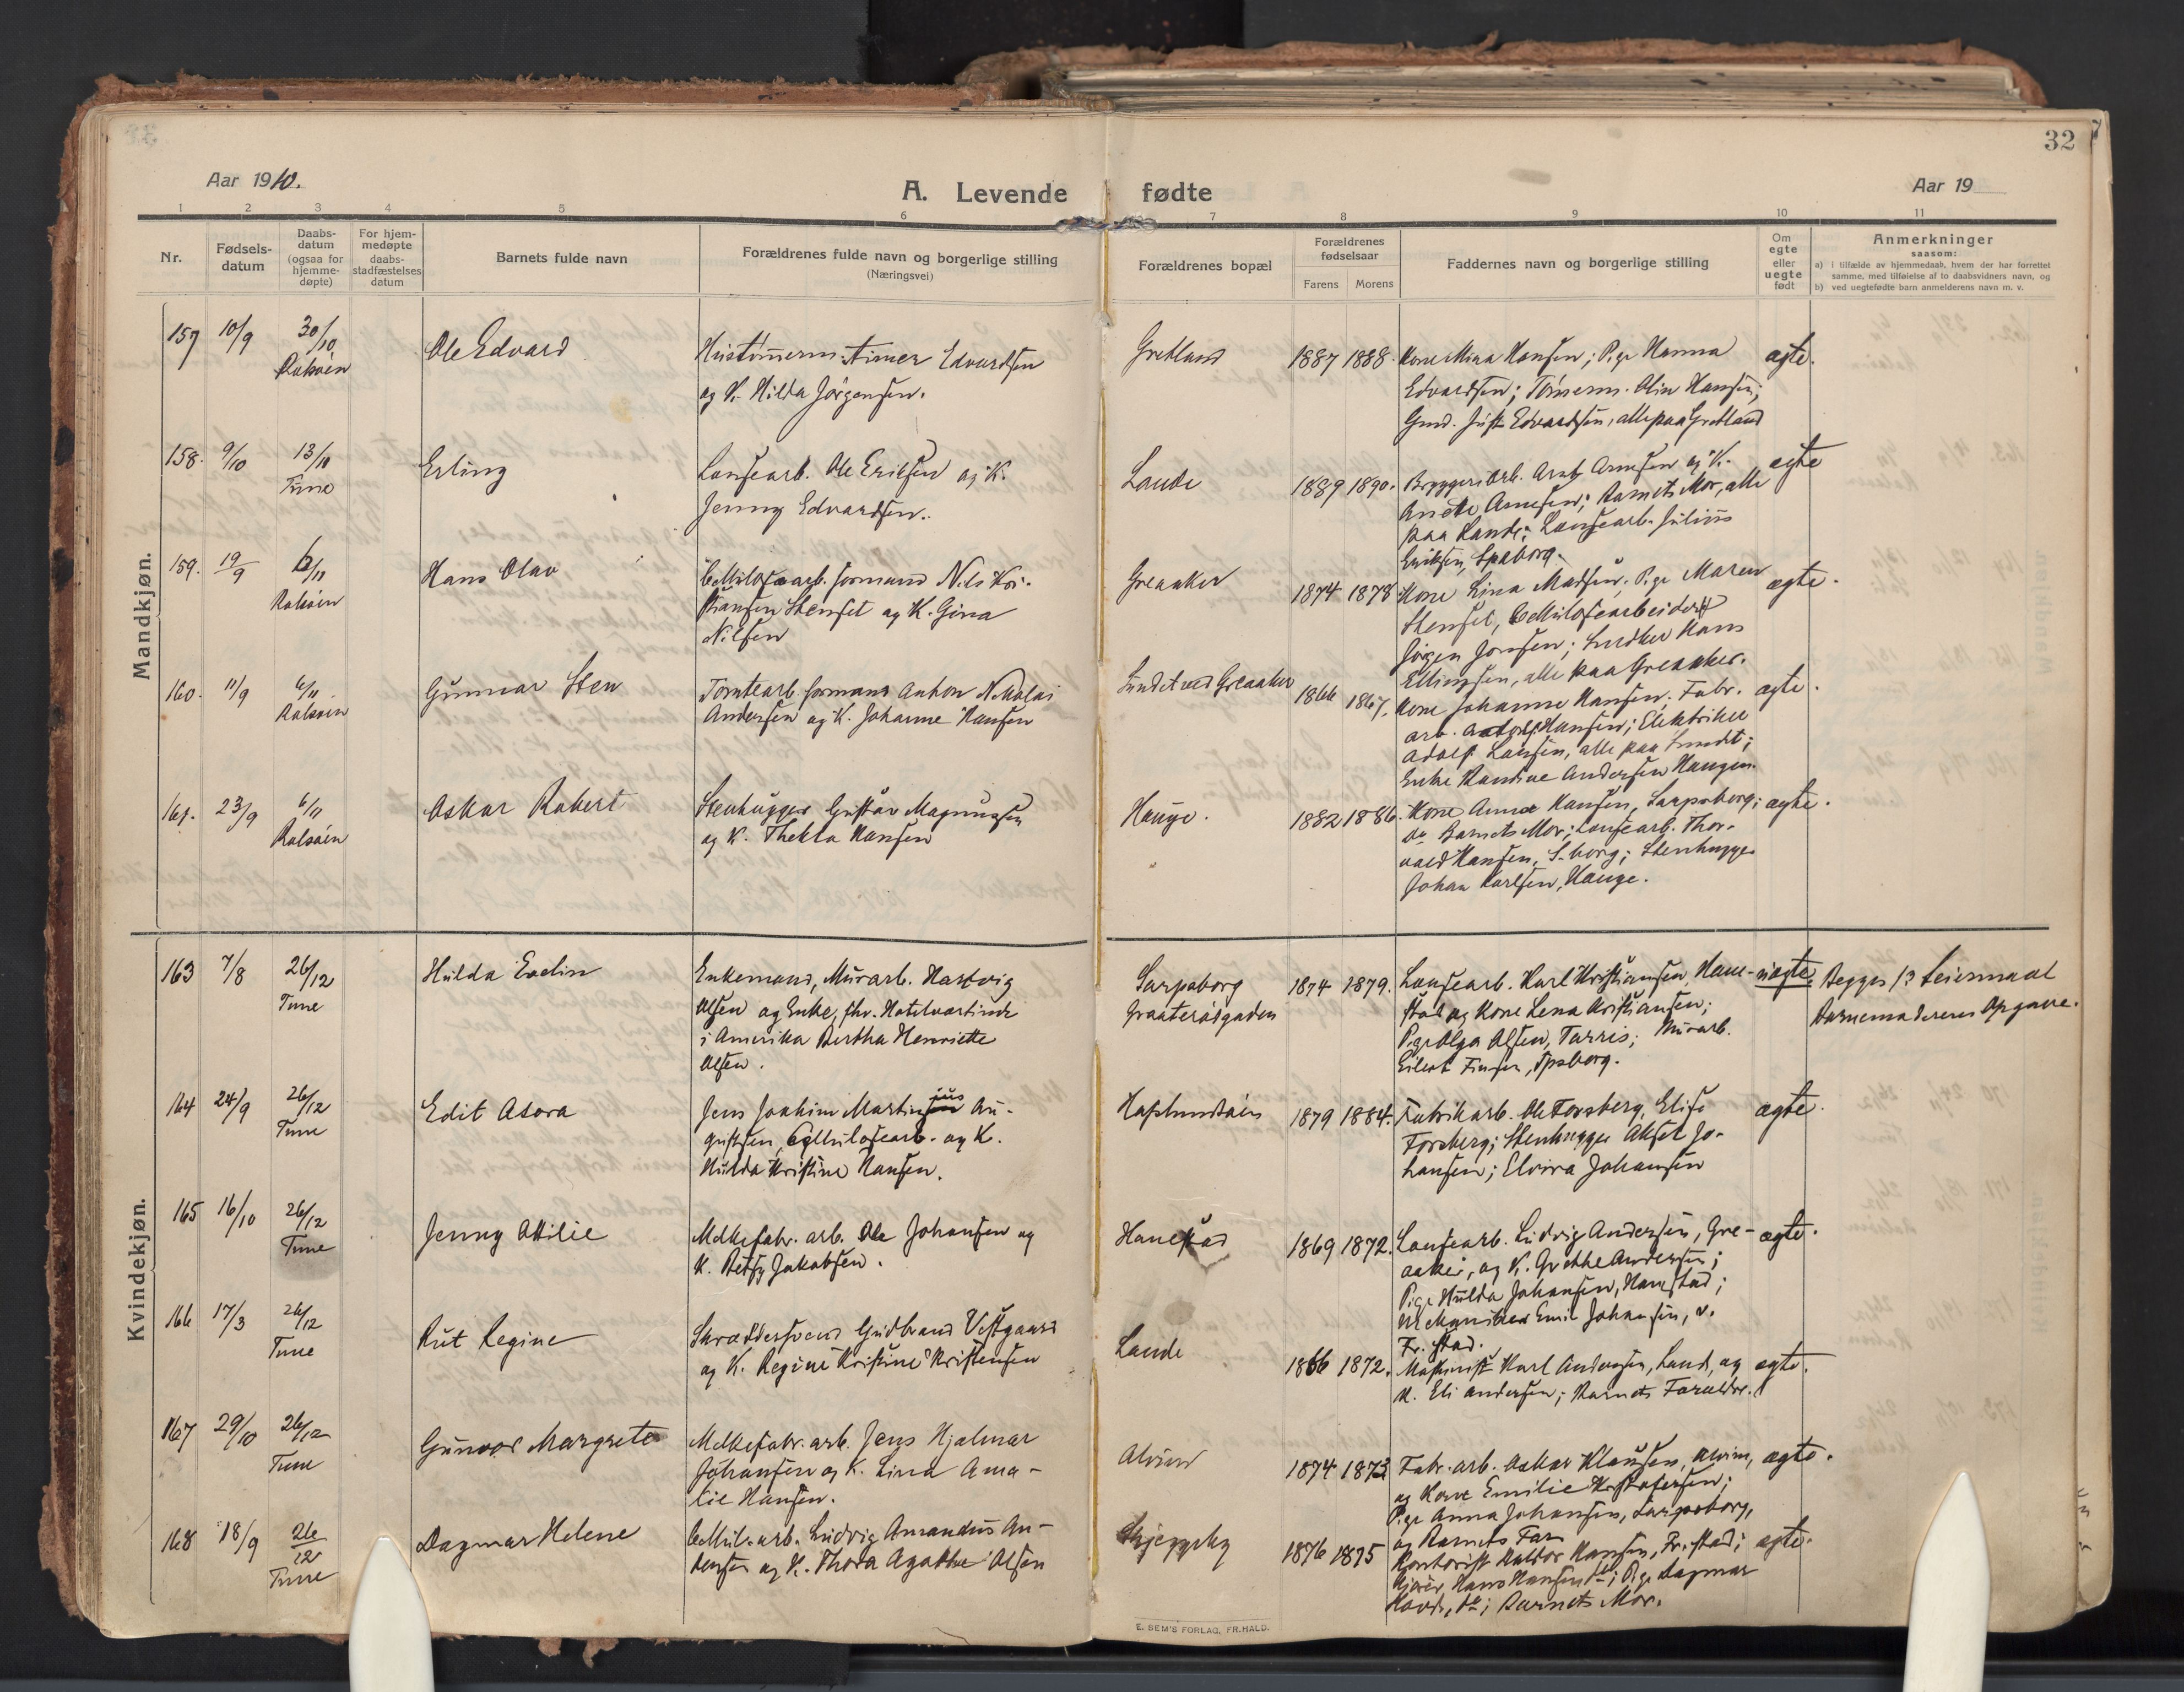 32
Aar 1910.
A. Levende fødte
Aar 19
1 2 3 4 5 6 7 8 9 10 11
Nr.
Fødsels-
datum
Daabs-
datum
(ogsaa for
hjemme-
døpte)
For hjem-
medøpte
daabs-
stadfæstelses
datum
Barnets fulde navn
Forældrenes fulde navn og borgerlige stilling
(Næringsvei)
Forældrenes bopæl
Forældrenes
fødselsaar
Farens Morens
Faddernes navn og borgerlige stilling
Om
egte
eller
uegte
født
Anmerkninger
saasom:
a) i tilfælde av hjemmedaab, hvem der har forrettet
samme, med tilføielse af to daabsvidners navn, og
b) ved uegtefødte barn anmelderens navn m. v.
Mandkjøn.
157 10/9 30/10 Ole Edvard
Rolsøen
Edvardsen
og K. Hilda Jørgensen.
Gretland 1887 1888. Kone Mina Hansen; Pige Hanna ægte.
Edvardsen; Tømmerm. Olin Hansen;
Edvardsen, alle paa Gretland
158. 9/10 13/11 Erling
Tune
Losearb. Ole Eriksen og K.
Jenny Edvardsen.
Lande 1889 1890. Bryggeriarb. Arnt Arnesen og K. ægte
Arnesen; Barnets Mor, alle
paa Lande; Losearb. Julius
Eriksen, Spsborg.
159. 19/9 6/11 Hans Olav
Rolsøen
Cellulosearb. formand Nils Kri-
stiansen Stenset og K. Gina
Nilsen
Greaaker 1874 1878 Kone Lina Madsen, Pige Maren ægte.
Stenset, Cellulosearbeider
Jørgen Jonsen; Snedker Hans
Ellingsen, alle paa Greaaker.
160. 11/9 6/11 Gunnar Sten
Rolsøen
Tomtearb. formand Anton Nikolai
Andersen og K. Johanne Hansen
Sundet ved Greaaker 1866 1867. Kone Johanne Hansen; Fabr. ægte.
arb. Hansen; Elektriker
Adolf Larsen, alle paa Sundet;
Enke Randine Andersen Haugen.
161. 23/9 6/11 Oskar Robert
Rolsøen
Stenhugger Gustav Magnussen
og K. Thekla Hansen
Hauge. 1882 1886. Kone Anna Hansen, Sarpsborg; ægte.
Barnets Mor; Losearb. Thor-
vald Hansen, S-borg; Stenhugger
Johan Karlsen, Hauge.
Kvindekjøn.
163 7/8 26/12 Hulda Evelin
Tune
Enkemand, Murarb. Hartvig
Olsen og Enke, fhv. Hotelvertinde
i Amerika Bertha Henriette
Olsen.
Sarpsborg
1874 1879. Losearb. Karl Kristiansen, Hane- uægte. Begges 1ste Leiermaal
stad og Kone Lena Kristiansen; Barnemoderens Opgave.
Pige Olga Olsen, Murarb.
164 24/9 26/12 Edit Asora
Tune
Jens Joakim Martinius Au-
gustsen, Cellulosearb. og K.
Hulda Kristine Hansen.
Haslundsøen 1879 1884. Fabrikarb. Ole Forsberg, Elise ægte.
Forsberg; Stenhugger Aksel Jo-
hansen; Elvira Johansen
165 16/10 26/12 Jenny Otilie
Tune
Melkefabr. arb. Ole Johansen og
K. Betsy Jakobsen.
Hanestad 1869 1872. Losearb. Ludvig Andersen, Gre- ægte.
aaker, og K. Grethe Andersen;
Pige Hulda Johansen, Hanestad;
Mekaniker Emil Johansen, v.
Fr. stad.
166 17/3 26/12 Rut Regine
Tune
Skræddersvend Gudbrand Vestgaard
og K. Regine Kristine Kristensen
Lande 1866 1872. Maskinist Karl Andersen, Lande, og ægte.
K. Eli Andersen; Barnets Forældre.
167 29/10 26/12 Gunvor Margrete
Tune
Melkefabr. arb. Jens Hjalmar
Johansen og K. Lina Ama-
lie Hansen.
Alvim 1874 1873 Fabr. arb. Oskar Klausen, Alvim, ægte.
og Kone Emilie Kristofersen;
Pige Anna Johansen, Sarpsborg,
og Barnets Far
168 18/9 26/12 Dagmar Helene
Tune
Cellul. arb. Ludvig Amandus An-
dersen og K. Thora Agathe Olsen
Skjeggeby 1876 1875 Kontorist Haldor Hansen, Fr. stad; ægte.
Hans Hansen do; Pige Dagmar
do; Barnets Mor.
E. SEM'S FORLAG, FR.HALD.